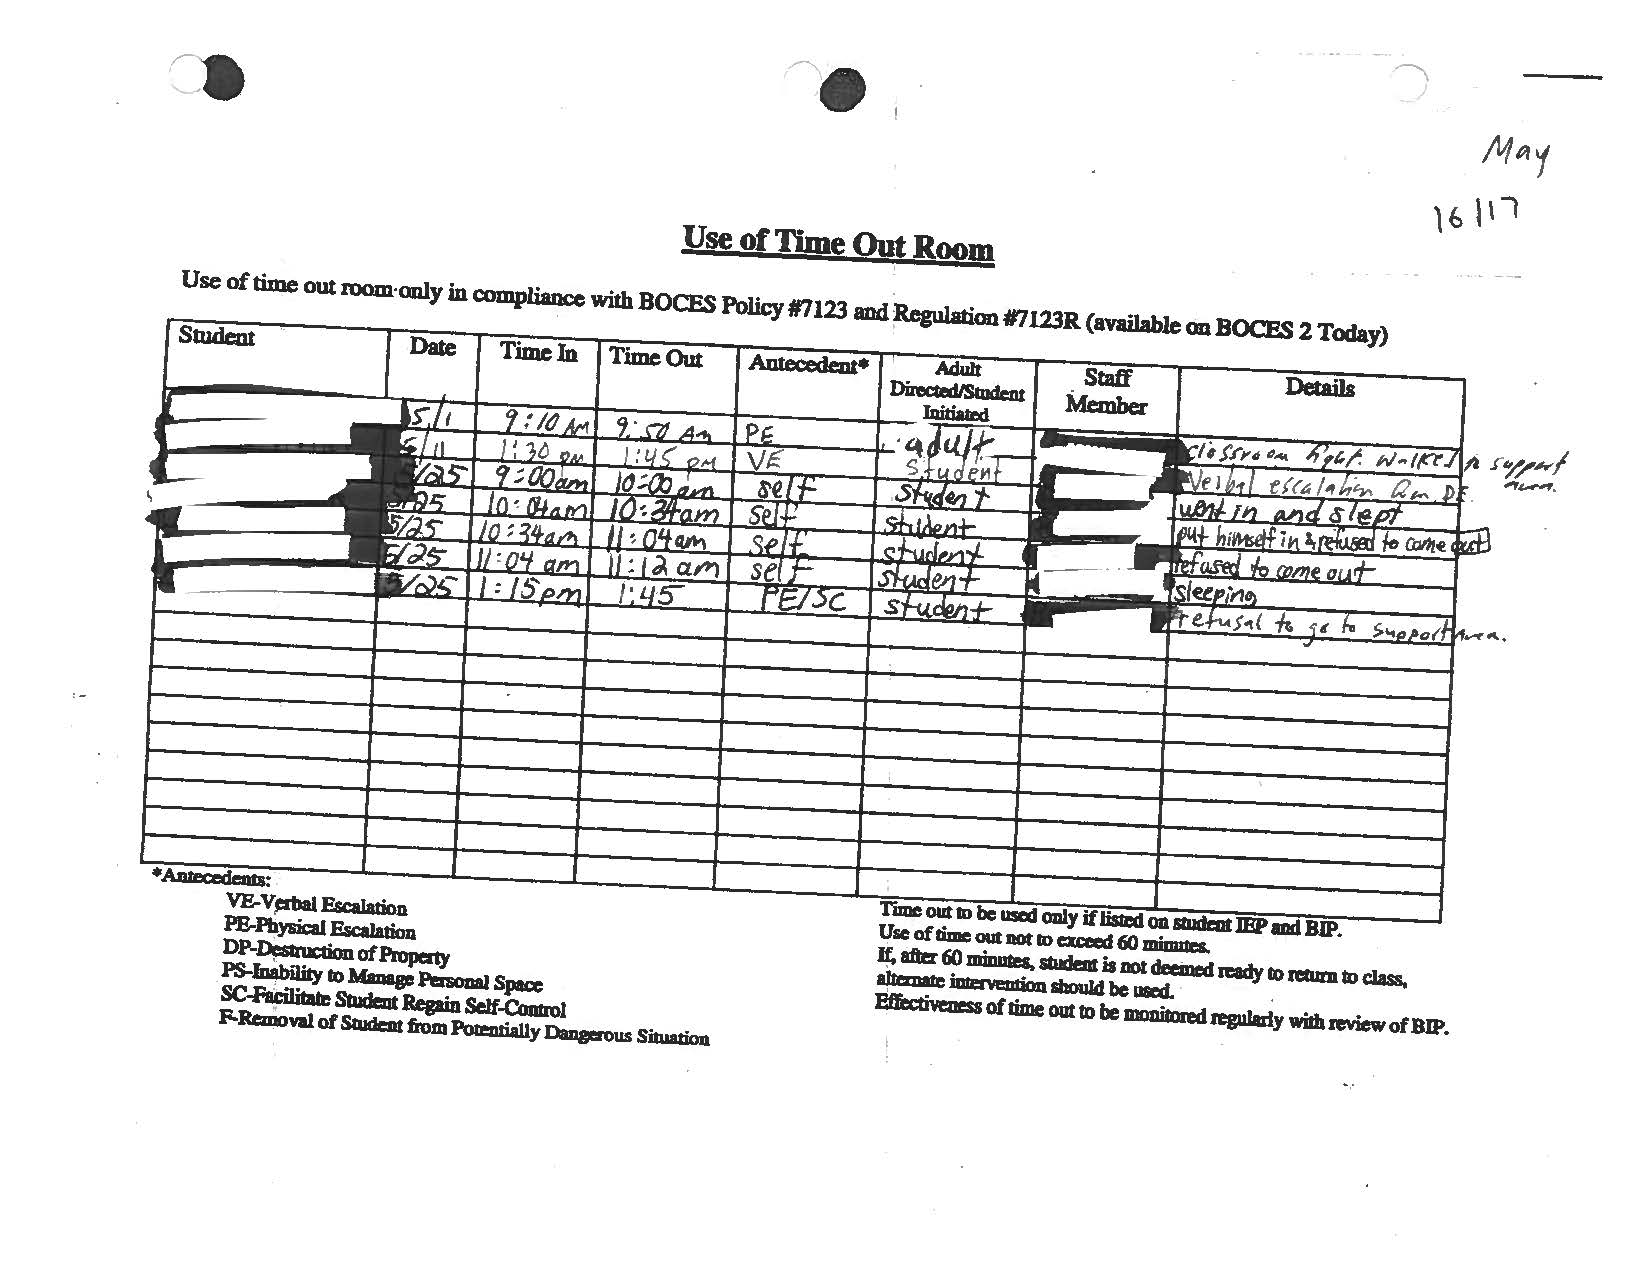 May
16/17
Use of Time Out Room
Use of time out room only in compliance with BOCES Policy #7123 and Regulation #7123R (available on BOCES 2 Today)
Student Date Time In Time Out Antecedent* Adult Directed/Student Initiated Staff Member Details
5/1 9:10 AM 9:50 Am PE adult classroom fight. walked to support area.
5/11 1:30 pm 1:45 pm VE Student Verbal escalation
5/25 9:00am 10:00am self student went in and slept
5/25 10:04am 10:34am self student put himself in & refused to come out
5/25 10:34am 11:04am self student refused to come out
5/25 11:04 am 11:12 am self student sleeping
5/25 1:15pm 1:45 PE/SC student refusal to go to support Area.
*Antecedents:
VE-Verbal Escalation
PE-Physical Escalation
DP-Destruction of Property
PS-Inability to Manage Personal Space
SC-Facilitate Student Regain Self-Control
F-Removal of Student from Potentially Dangerous Situation
Time out to be used only if listed on student IEP and BIP.
Use of time out not to exceed 60 minutes.
If, after 60 minutes, student is not deemed ready to return to class,
alternate intervention should be used.
Effectiveness of time out to be monitored regularly with review of BIP.